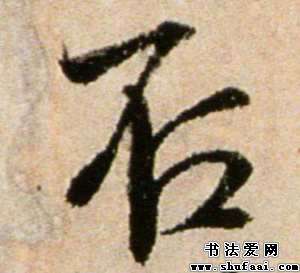 否
书法爱网
www.shufaai.com